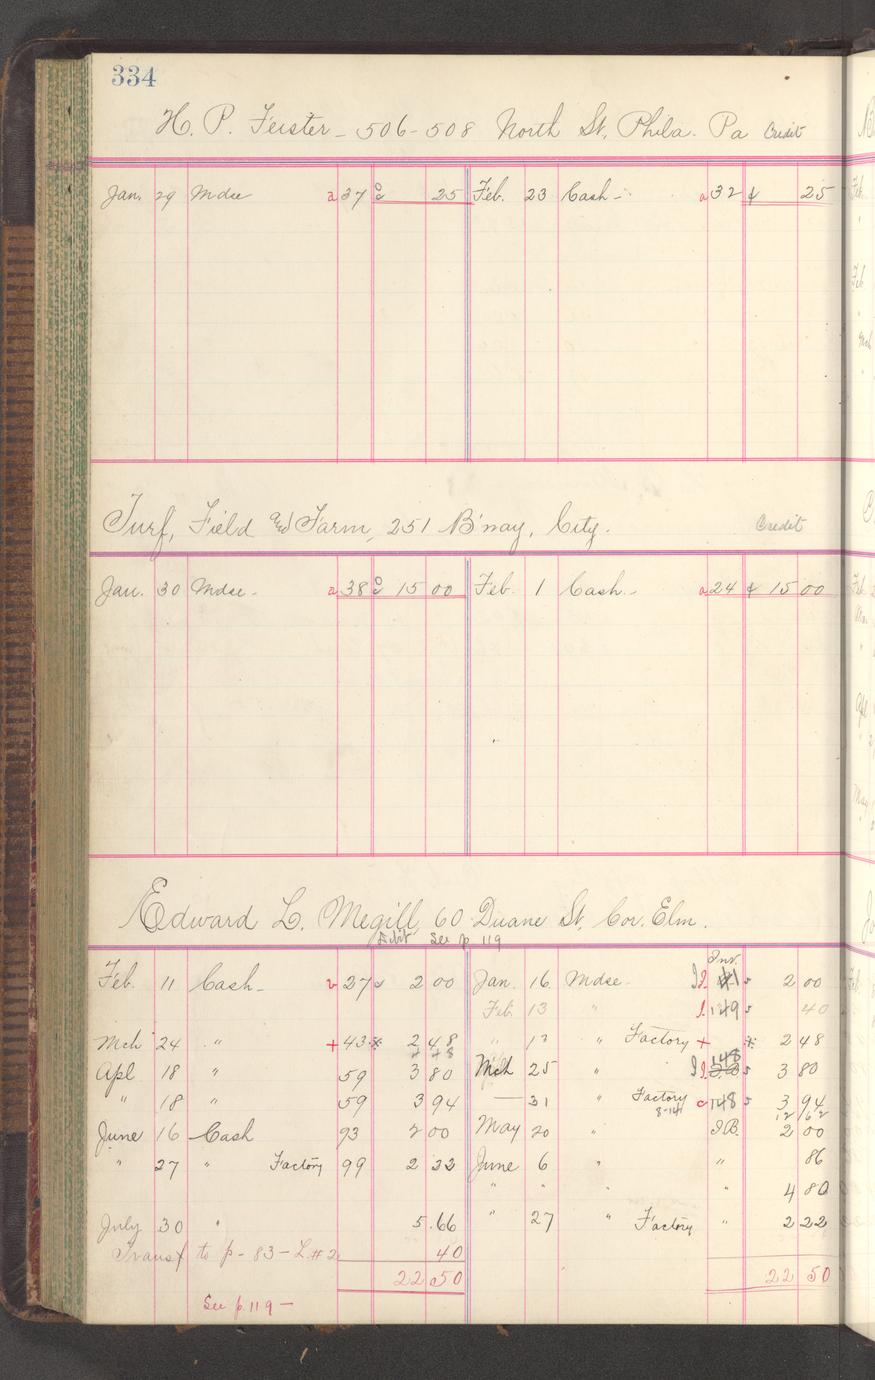 334
H. P. Feister - 506-508 North St, Phila. Pa Credit
Jan. 29 Mdse a 37 25 Feb. 23 Cash - a 32 ¢ 25
Turf, Field and Farm, 251 B'way, City. Credit
Jan. 30 Mdse - a 38 15 00 Feb. 1 Cash. - a 24 ¢ 15 00
Edward L. Megill, 60 Duane St, Cor. Elm.
Debit See p 119
Inv.
Feb. 11 Cash - 27 2 00 Jan. 16 Mdse 2 00
Feb. 13 " 149 40
Mch 24 " + 43 2 48 " " Factory + 2 48
7 48
148
Apl 18 " 59 3 80 Mch 25 " 3 80
" 18 " 59 3 94 — 31 " Factory 148 3 94
8-14 12/62
June 16 Cash 93 2 00 May 20 " I.B. 2 00
" 27 " Factory 99 2 22 June 6 " " 86
" " " " 4 80
July 30 " 5.66 " 27 " Factory " 2 22
Transf to p - 83 - L. # 2 40
22 50 22 50
See p. 119 —